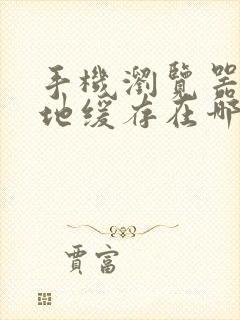 手機瀏覽器
地缓存在哪
賈富